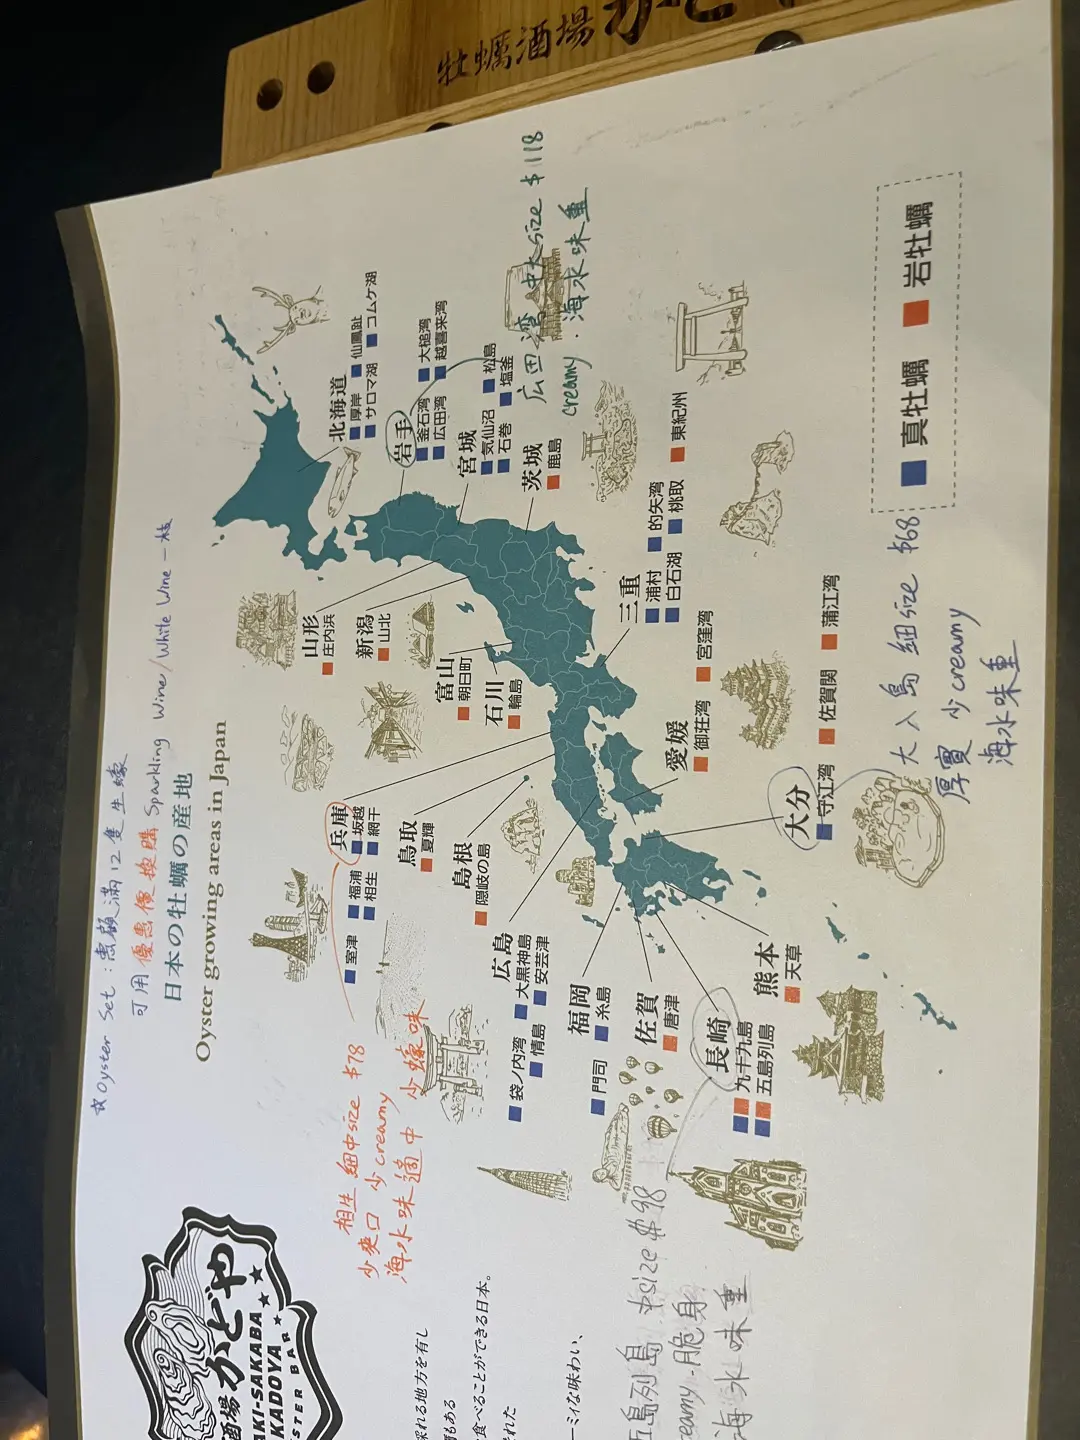 牡蠣酒場 かど
☆Oyster Set : 惠顧滿12隻生蠔
可用優惠價換購 Sparkling Wine/White Wine一枝
日本の牡蠣の産地
Oyster growing areas in Japan
酒場 かどや
AKI-SAKABA
KADOYA
STER BAR
採れる地方を有し
もある
食べることができる日本。
れた
ーミィな味わい、
北海道
厚岸 仙鳳趾
サロマ湖 コムケ湖
岩手
釜石湾 大槌湾
広田湾 越喜来湾
宮城
気仙沼 松島
石巻 塩釜
茨城
鹿島
広田湾 中大size $118
creamy . 海水味重
山形
庄内浜
新潟
山北
富山
朝日町
石川
輪島
兵庫
室津 福浦 坂越
相生 網干
鳥取
夏輝
島根
隠岐の島
広島
袋ノ内湾 大黒神島
情島 安芸津
福岡
門司 糸島
佐賀
唐津
長崎
九十九島
五島列島
熊本
天草
大分
守江湾 佐賀関 蒲江湾
愛媛
御荘湾 宮窪湾
三重
浦村 的矢湾 東紀州
白石湖 桃取
相生 細中size $78
少爽口 少creamy 少蠔味
海水味適中
五島列島 中size $98
reamy - 脆身
海水味重
大入島 細size $68
厚實 少creamy
海水味重
真牡蠣 岩牡蠣